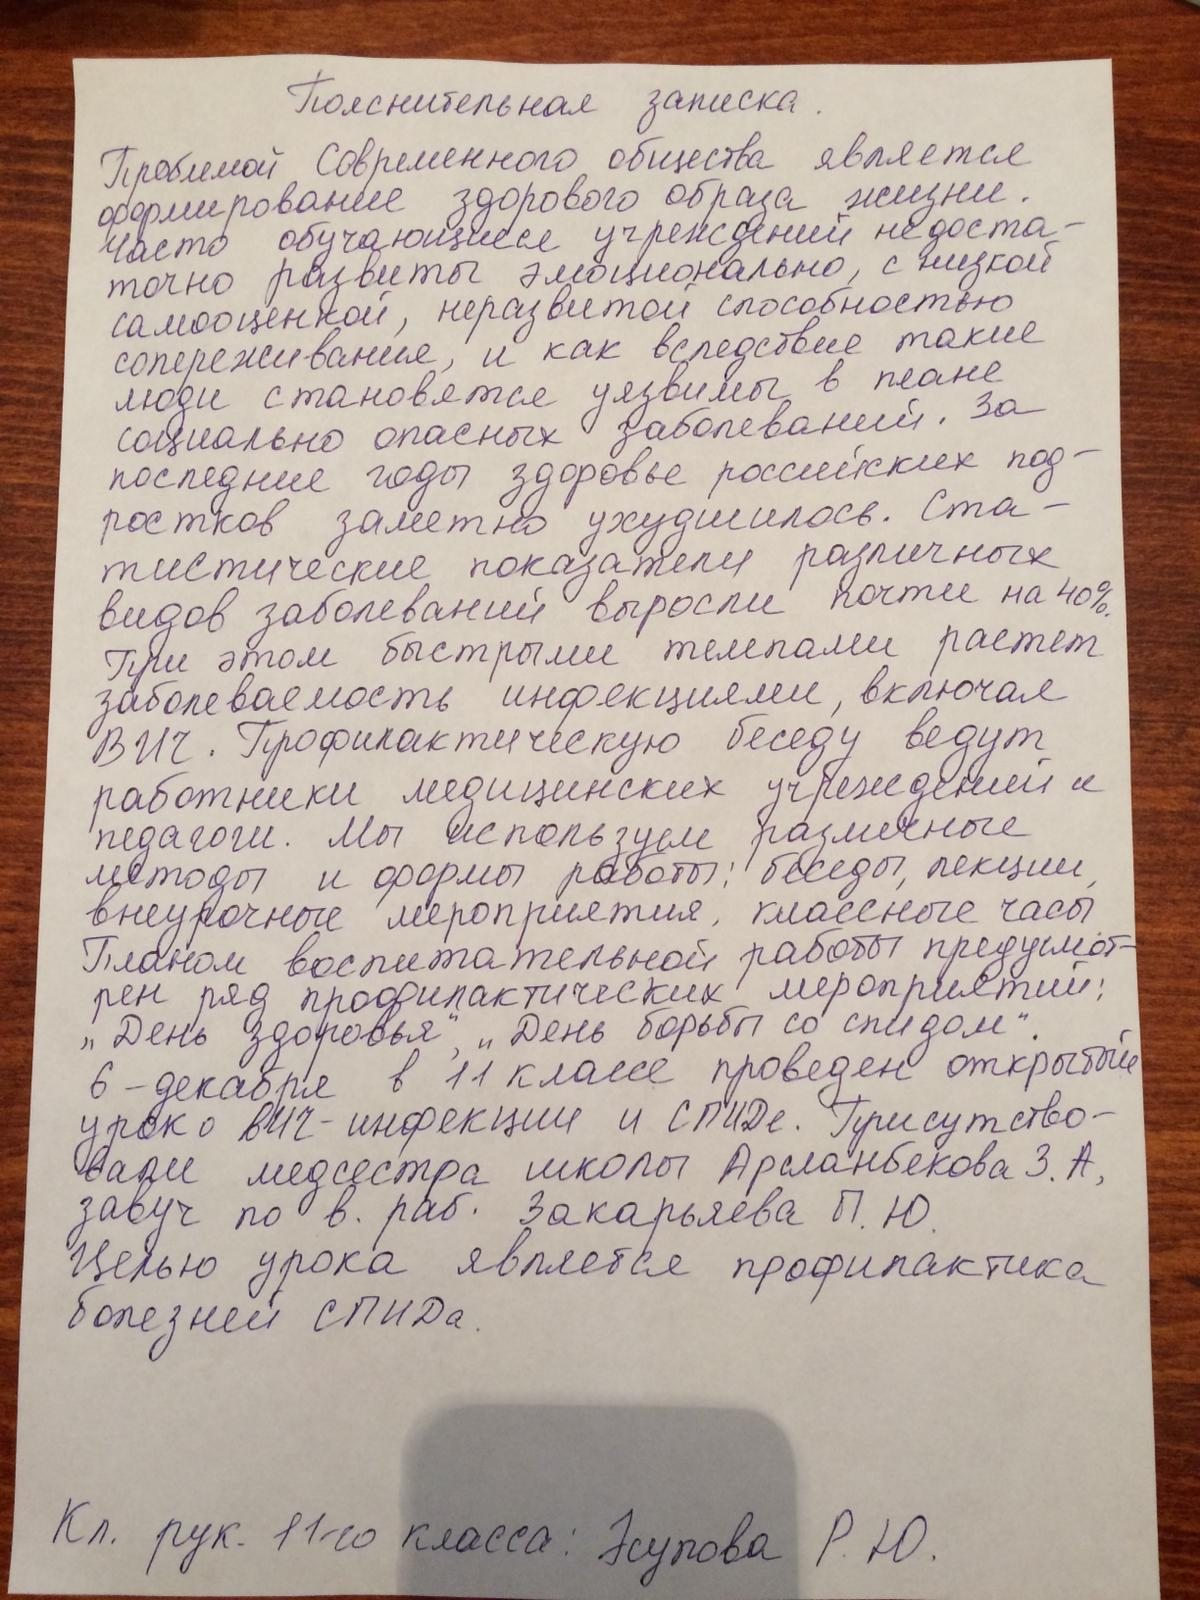 Пояснительная записка.
Проблемой Современного общества является
формирование здорового образа жизни.
Часто обучающиеся учреждений недоста-
точно развиты эмоционально, с низкой
самооценкой, неразвитой способностью
сопереживание, и как вследствие такие
люди становятся уязвимы в плане
социально опасных заболеваний. За
последние годы здоровье российских под-
ростков заметно ухудшилось. Ста-
тистические показатели различных
видов заболеваний выросли почти на 40%.
При этом быстрыми темпами растет
заболеваемость инфекциями, включая
ВИЧ. Профилактическую беседу ведут
работники медицинских учреждений и
педагоги. Мы используем различные
методы и формы работы: беседы, лекции,
внеурочные мероприятия, классные часы
Планом воспитательной работы предусмот-
рен ряд профилактических мероприятий:
„День здоровья", „День борьбы со спидом".
6-декабря в 11 классе проведен открытый
урок о ВИЧ-инфекции и СПИДе. Присутство-
вали медсестра школы Арсланбекова З.А,
завуч по в. раб. Закарьяева П.Ю.
Целью урока является профилактика
болезней СПИДа.
Кл. рук. 11-го класса: Юсупова Р.Ю.